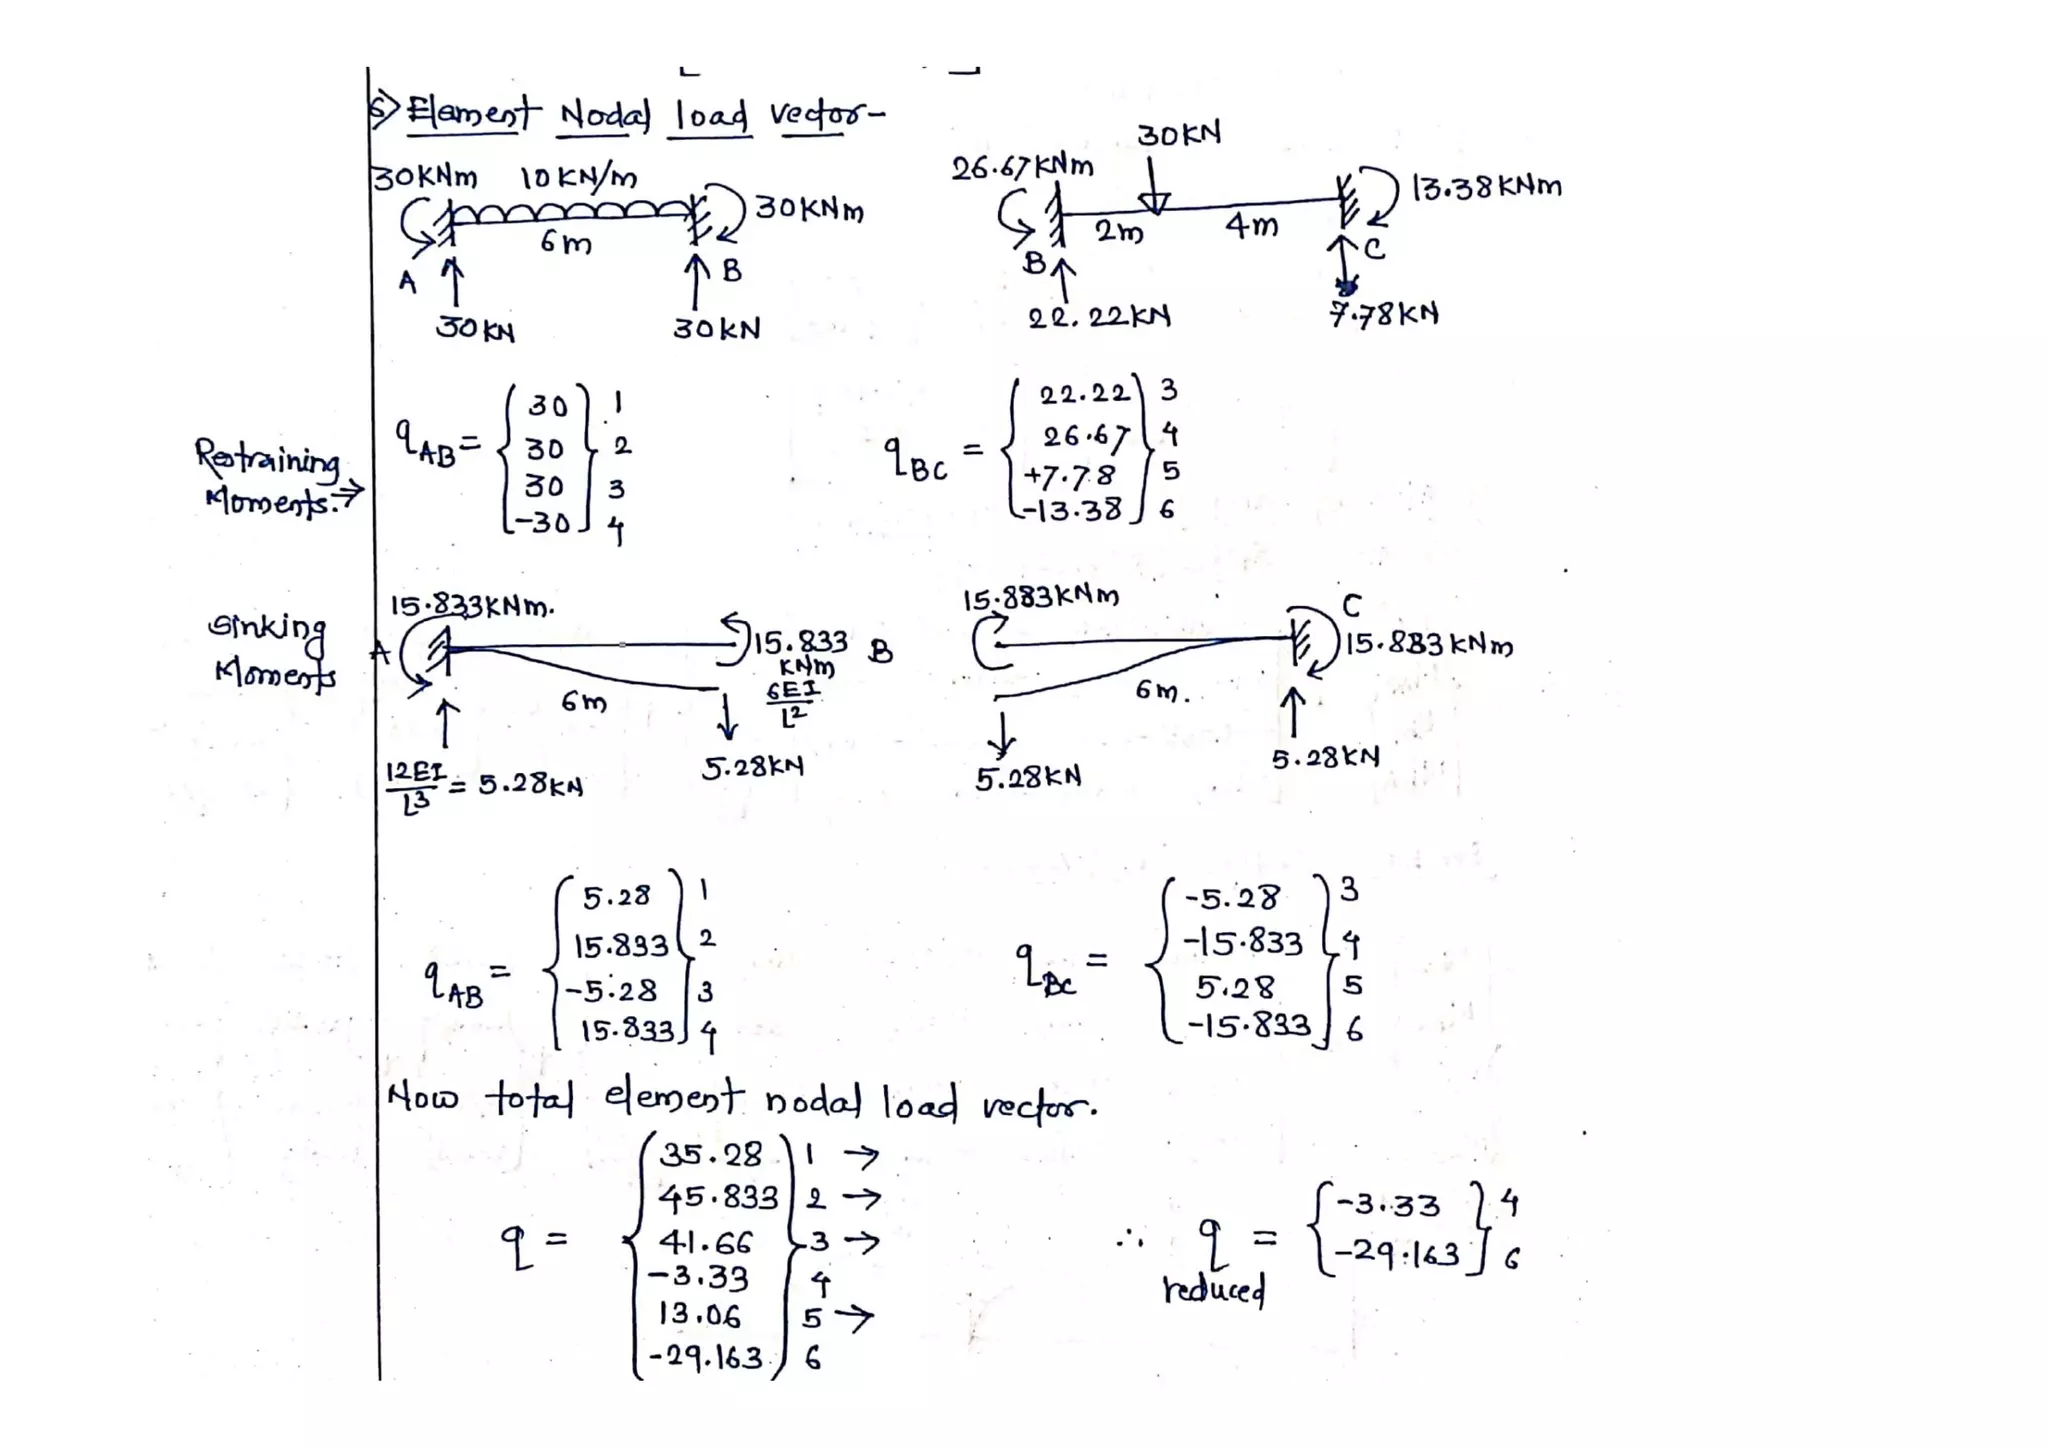 5) Element Nodal load vector-
30KNm 10KN/m 30KNm
6m
A B
30KN 30KN
30KN
26.67KNm 13.38KNm
2m 4m
B C
22.22KN 7.78KN
Restraining Moments. ⇒
qAB = { 30 } 1
30 2
30 3
-30 4
qBC = { 22.22 } 3
26.67 4
+7.78 5
-13.38 6
Sinking Moments
15.833KNm.
A 15.833 KNm B
6EI/L²
6m
12EI/L³ = 5.28KN 5.28KN
15.883KNm C
15.883KNm
6m.
5.28KN 5.28KN
qAB = { 5.28 } 1
15.833 2
-5.28 3
15.833 4
qBC = { -5.28 } 3
-15.833 4
5.28 5
-15.833 6
Now total element nodal load vector.
q = { 35.28 } 1 →
45.833 2 →
41.66 3 →
-3.33 4
13.06 5 →
-29.163 6
∴ q reduced = { -3.33 } 4
-29.163 6